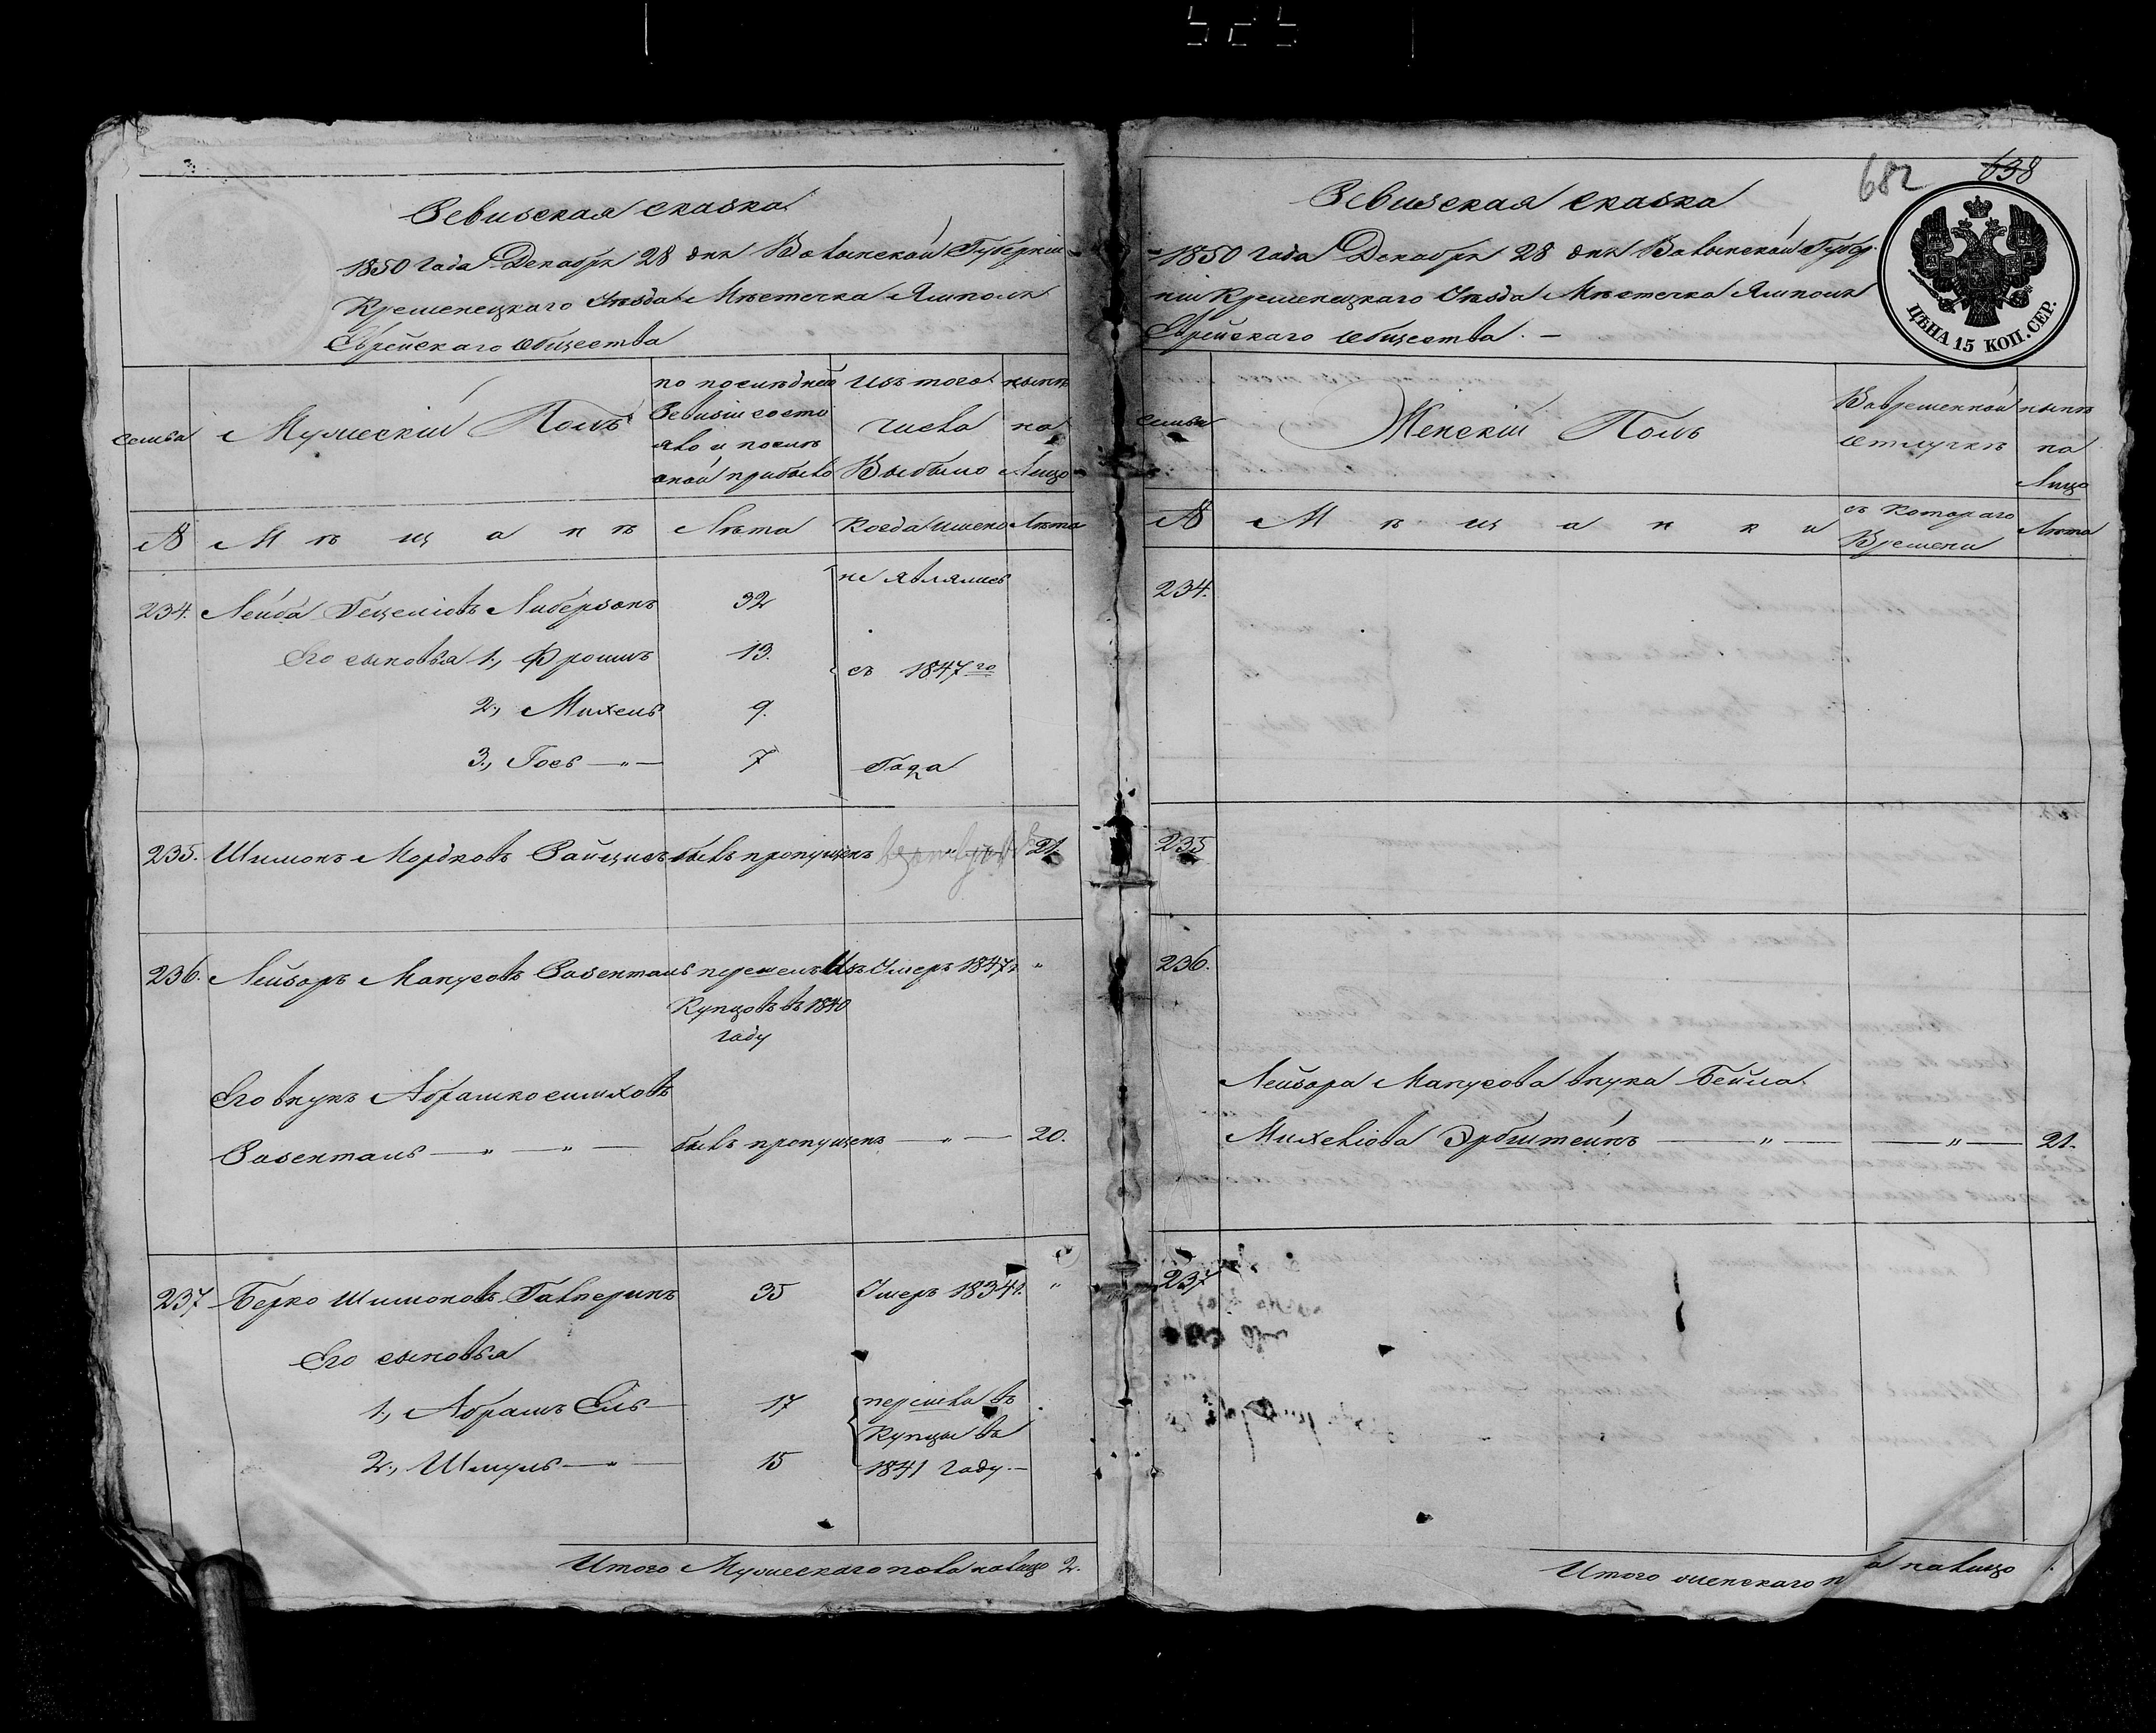 525
Ревизская сказка
1850 года Декабря 28 дня Волынской Губернiи
Кременецкаго Уѣзда Мѣстечка Ямполя
Еврейскаго Общества
семья
Мужескiй Полъ
по послѣдней
Ревизiи состо
яло и послѣ
оной прибыло
изъ того
числа
Выбыло
нынѣ
на
Лицо
№
Мѣщанѣ
Лѣта
Когда имено
Лѣта
234. Лейба Гецелiовъ Либерзонъ 32 не явлились
Его сыновья 1., Фроимъ 13. съ 1847го
2., Михель 9.
3., Гось —"— 7 Года
235. Шимонъ Мордковъ Зайцись былъ пропущенъ 21.
236. Лейзоръ Манусовъ Розенталь перешелъ Изъ Умеръ 1847г "
Купцовъ въ 1840
году
Его внукъ Абрашко
Розенталь —"— —"— былъ пропущенъ —"— 20.
237 Берко Шимоновъ Галперинъ 35 Умеръ 1834г. "
Его сыновья
1., Абрамъ Ель — 17 перешли въ
Купцы въ
2., Шмуль —"— 15 1841 году. —
Итого Мужескаго пола налицо 2.
682 638
Ревизская сказка
1850 года Декабря 28 дня Волынской Губер
нiи Кременецкаго Уѣзда Мѣстечка Ямполя
Еврейскаго Общества. —
ЦѢНА 15 КОП. СЕР.
семья
Женскiй Полъ
Во временной
отлучкѣ
нынѣ
на
Лицо
№
Мѣщанки
съ котораго
Времени
Лѣта
234.
235
236.
Лейзора Манусова внука Бейла
Михелiова Эрбштейнъ —"— —"— 21.
237
Итого женскаго п а налицо